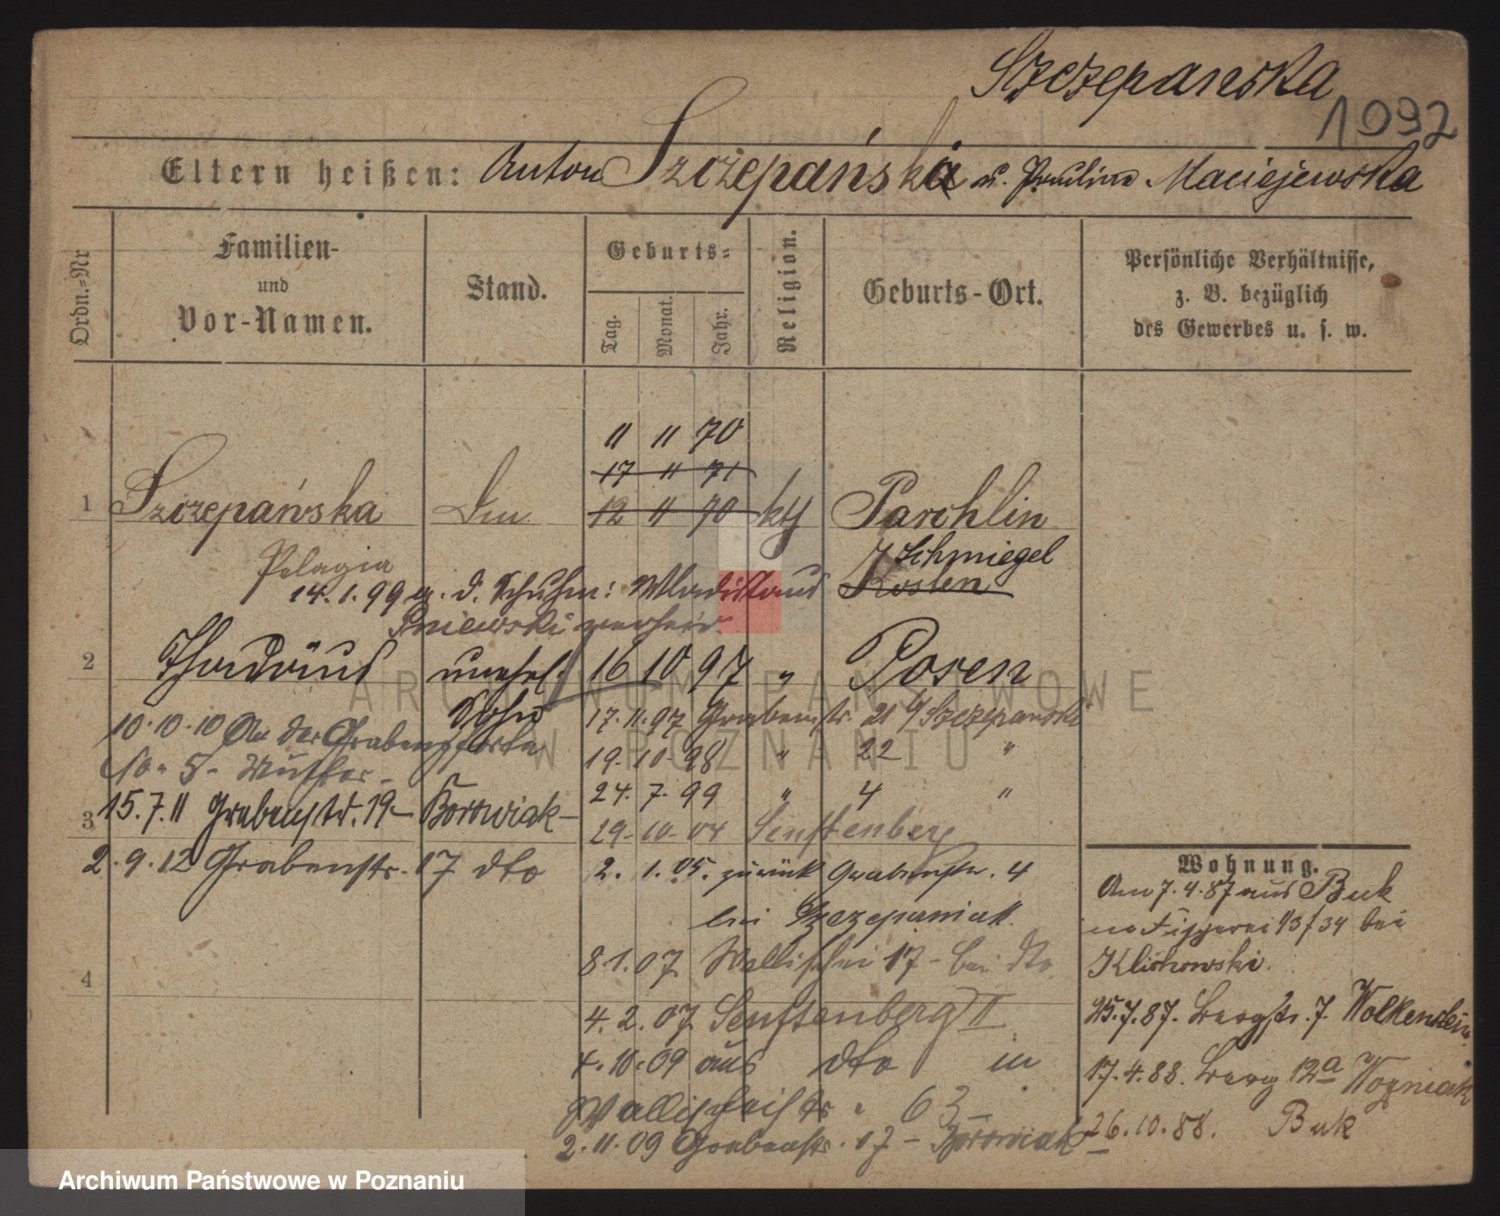 Szczepanska
1092
Eltern heißen: Anton Szczepański u. Paulina Maciejewska
Ordn.-Nr
Familien-
und
Vor-Namen.
Stand.
Geburts-
Tag.
Monat.
Jahr.
Religion.
Geburts-Ort.
Persönliche Verhältnisse,
z. B. bezüglich
des Gewerbes u. s. w.
11 11 70
17 11 71
1 Szczepańska 12 11 70 kth Parchlin
Schmiegel
Pelagia Kosten
14.1.99 a. d. Schuhm: Wladislaus
Pniewski verheir.
2 Thadäus unehel. 16 10 97 " Posen
Sohn
17.11.97 Grabenstr. 21 b/ Szczepanska
10.10.10 An der Grabenpforte
No. 5 - Mutter -
19.10.98 " 22 "
24.7.99 " 4 "
3 15.7.11 Grabenstr. 19 - Borowiak -
29.10.04 Senftenberg
2.9.12 Grabenstr. 17 dto
2.1.05. zurück Grabenstr. 4
bei Szczepaniak
8.1.07 Wallischei 17 - bei dto
4
4.2.07 Senftenberg II
4.10.09 aus dto in
Wallischeistr. 63 -
2.11.09 Grabenstr. 17 - Borowiak -
Wohnung.
Am 7.4.87 aus Buk
no Fischerei 13/34 bei
Klichowski.
15.7.87. Bergstr. 7. Wolkenstein
17.4.88. Berg 12a Wozniak
26.10.88. Buk
ARCHIWUM PAŃSTWOWE
W POZNANIU
Archiwum Państwowe w Poznaniu